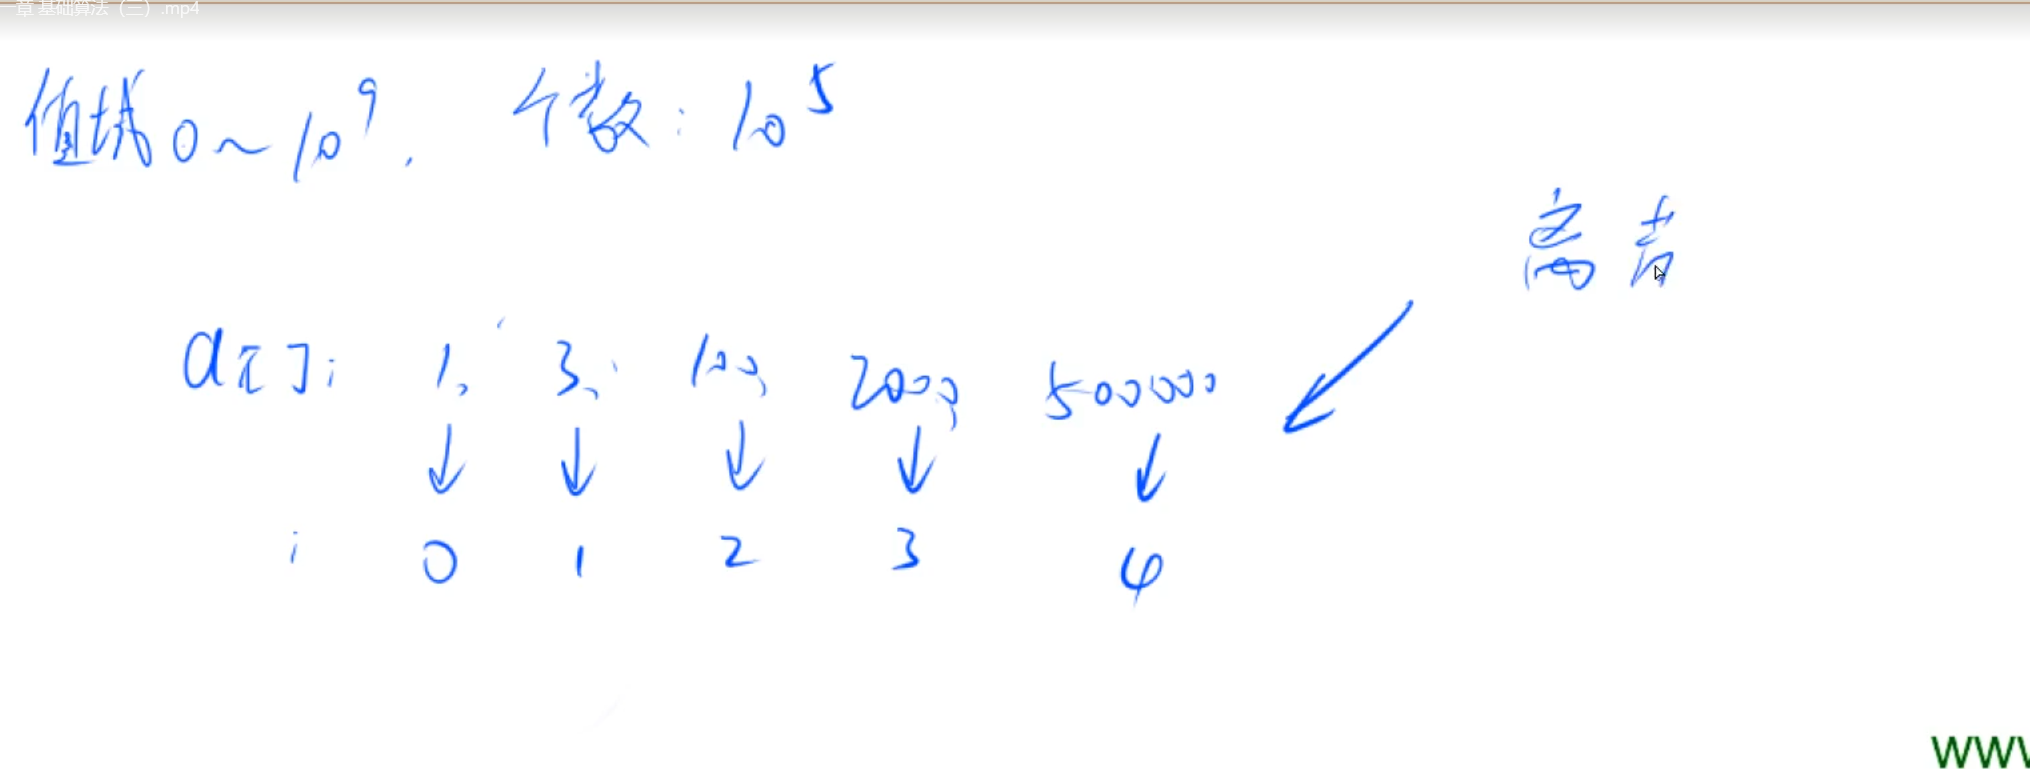 一章 基础算法（三）.mp4
值域0~10⁹, 个数: 10⁵
离
a[]: 1, 3, 100, 2000, 500000
↓ ↓ ↓ ↓ ↓
i 0 1 2 3 4